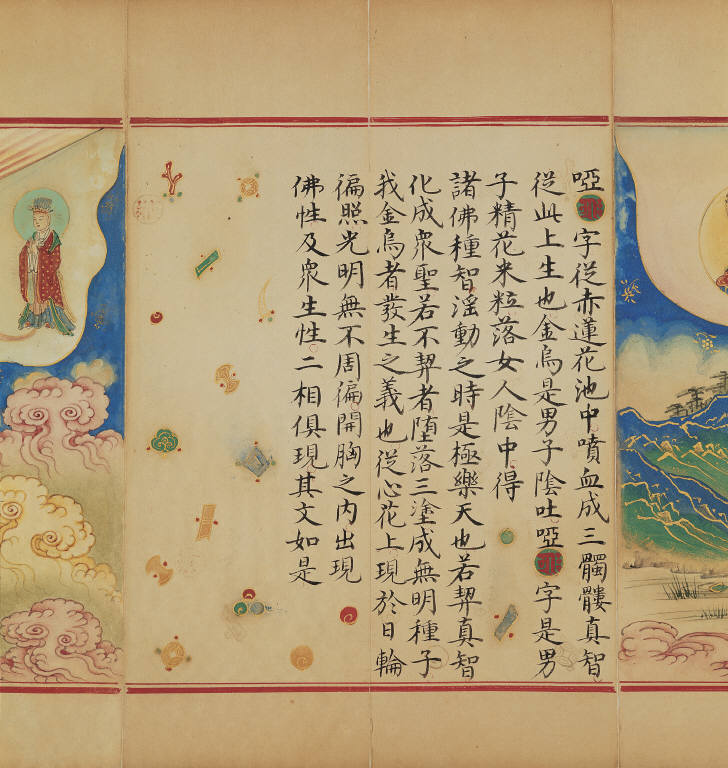 啞字從赤蓮花池中噴血成三髑髏真智
從此上生也金烏是男子陰吐啞字是男
子精花米粒落女人陰中得
諸佛種智滛動之時是極樂天也若契真智
化成衆聖若不契者堕落三塗成無明種子
我金烏者發生之義也從心花上現於日輪
徧照光明無不周徧開胸之內出現
佛性及衆生性二相俱現其文如是